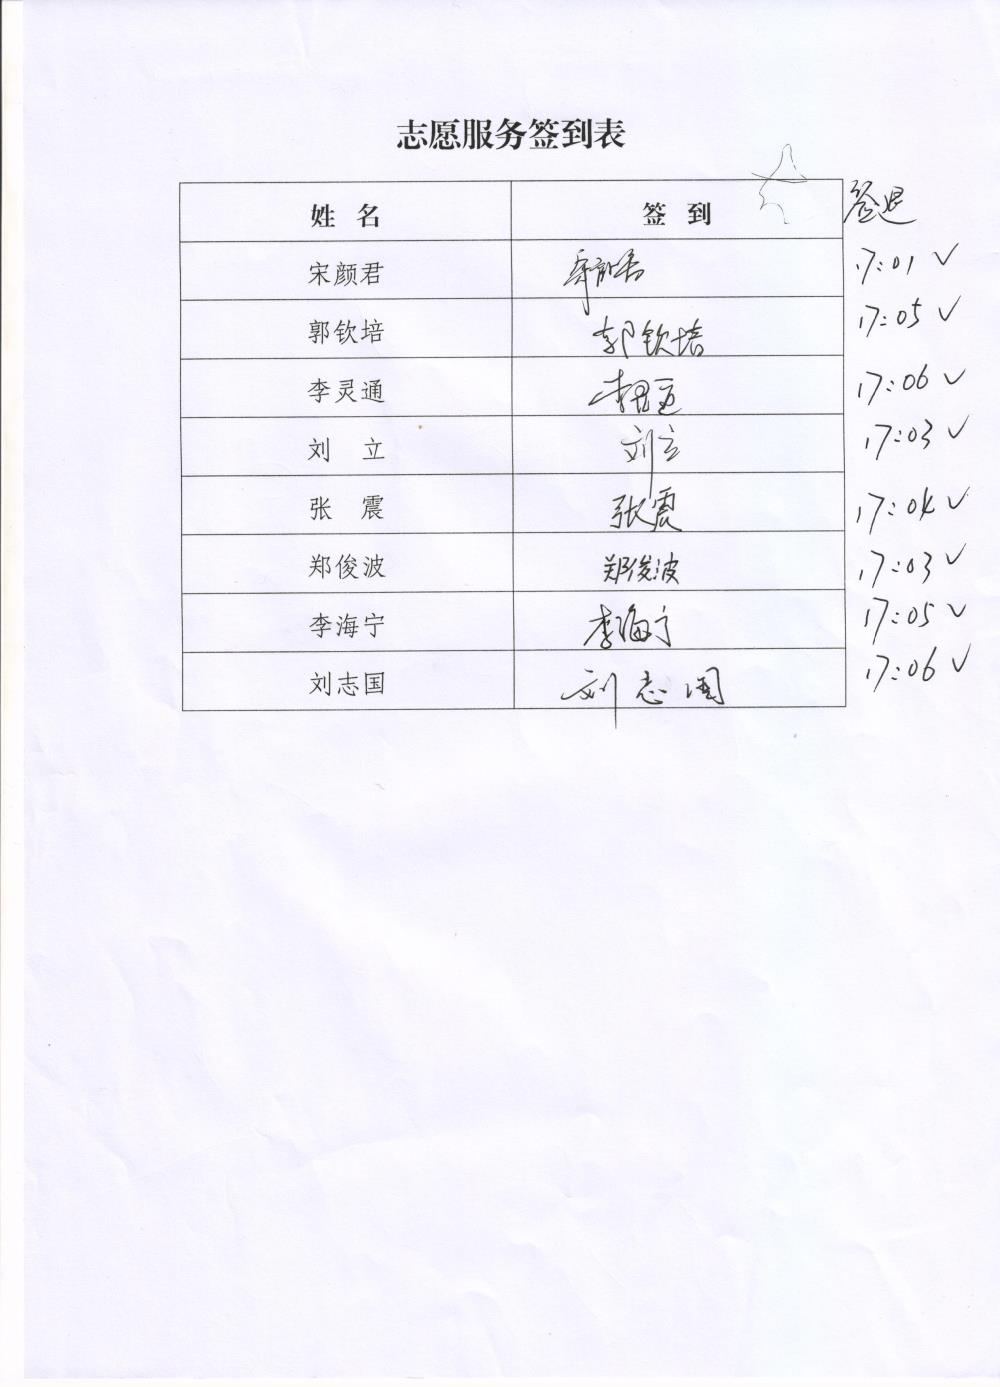 志愿服务签到表
姓 名 签 到 签退
宋颜君 17:01 ✓
郭钦培 郭钦培 17:05 ✓
李灵通 17:06 ✓
刘 立 刘立 17:03 ✓
张 震 张震 17:04 ✓
郑俊波 郑俊波 17:03 ✓
李海宁 李海宁 17:05 ✓
刘志国 刘志国 17:06 ✓